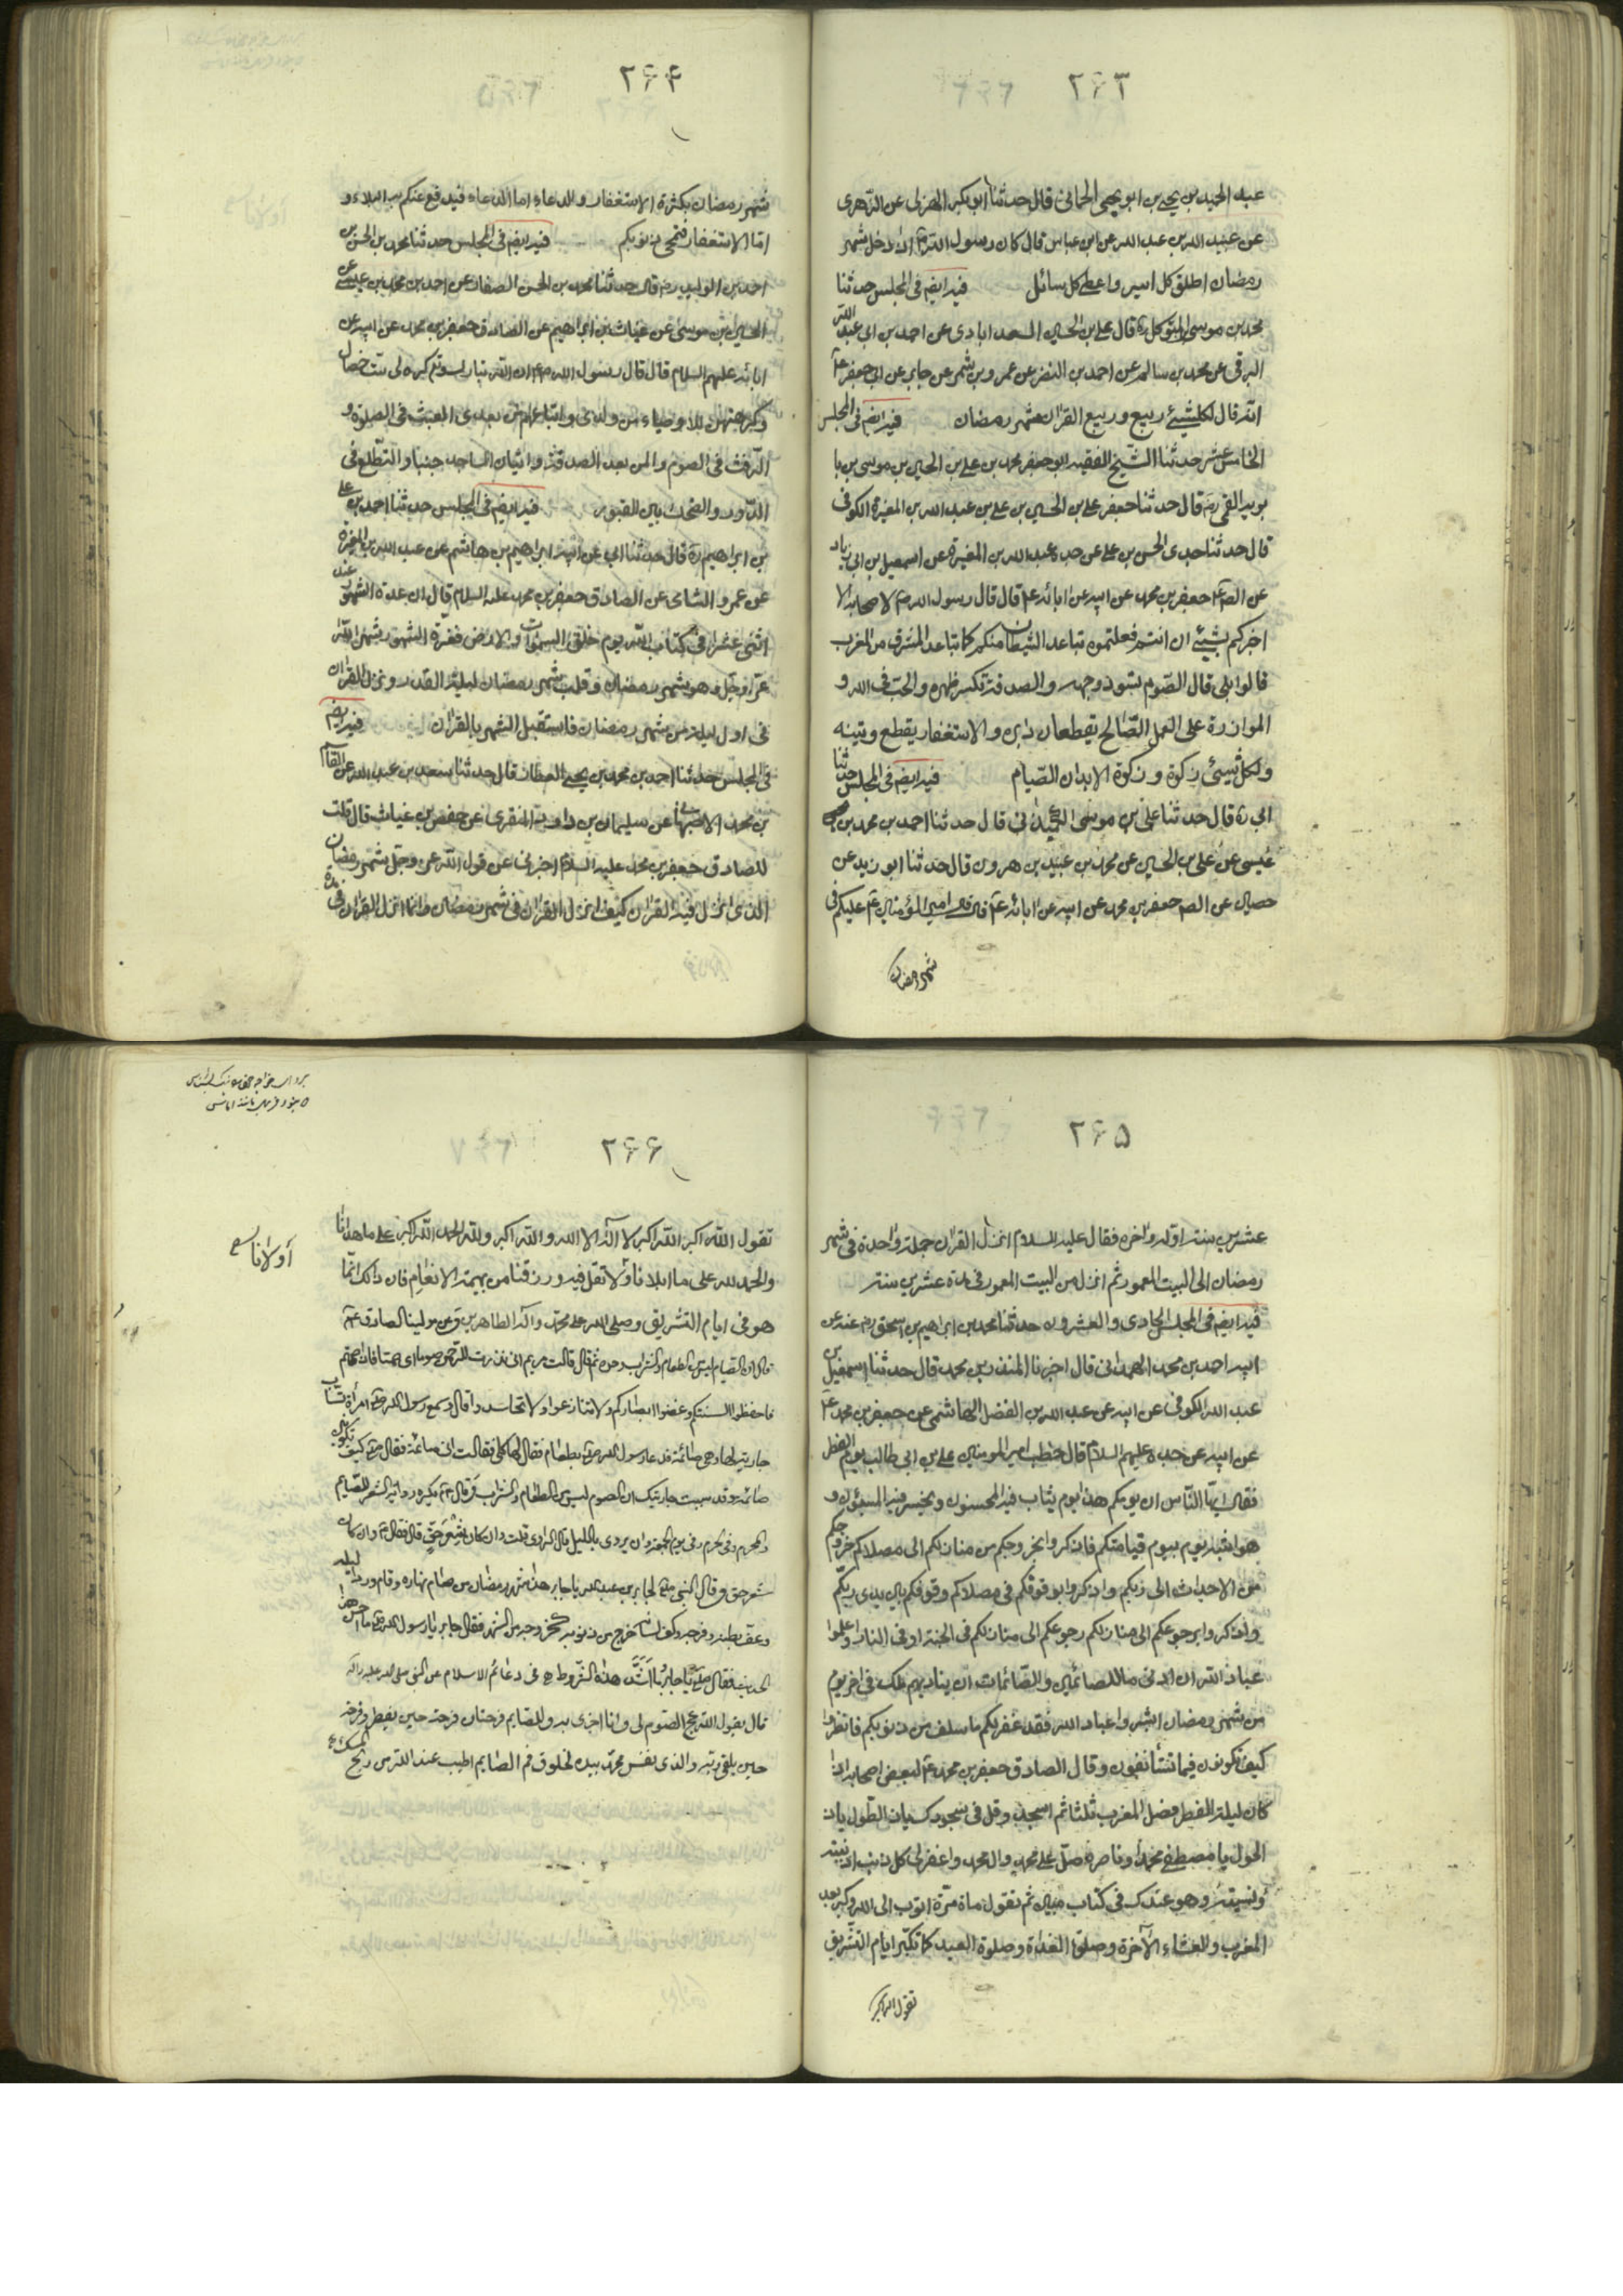 ۲۶۳
عبد الحميد بن يحيى بن ابو يحيى الحمانى قال حدثنا ابو بكر الهزلى عن الزّهرى
عن عبيد الله بن عبد الله عن ابن عباس قال كان رسول الله ص اذا دخل شهر
رمضان اطلق كل اسير واعطى كل سائل فيه ايضم فى المجلس حدثنا
محمد بن موسى المتوكل ره قال على بن الحسين السعد ابادى عن احمد بن ابى عبد الله
البرقى عن محمد بن سالم عن احمد بن النضر عن عمرو بن شمر عن جابر عن ابى جعفر ع
انه قال لكل شيئ ربيع وربيع القران شهر رمضان فيه ايضم فى المجلس
الخامس عشر حدثنا الشيخ الفقيه ابو جعفر محمد بن على بن الحسين بن موسى بن با
بويه القمى ره قال حدثنا جعفر على بن الحسين بن على بن عبد الله بن المغيرة الكوفى
قال حدثنا جدى الحسن بن على عن جده عبد الله بن المغيرة عن اسمعيل بن ابى زياد
عن الصم جعفر بن محمد عن ابيه عن ابائه ع قال قال رسول الله ص لاصحابه الا
اخبركم بشيئ ان انتم فعلتموه تباعد الشيطان منكم كما تباعد المشرق من المغرب
قالوا بلى قال الصّوم يسود وجهه والصدقة تكسر ظهره والحب فى الله و
الموازرة على العمل الصّالح يقطعان دابره والاستغفار يقطع وتينه
ولكل شيئ زكوة وزكوة الابدان الصّيام فيه ايضم فى المجلس حدثنا
ابى ره قال حدثنا على بن موسى الكميدانى قال حدثنا احمد بن محمد بن
عيسى عن على بن الحسين عن محمد بن عبيد بن هرون قال حدثنا ابو زيد عن
حصين عن الصم جعفر بن محمد عن ابيه عن ابائه ع قال قال امير المؤمنين ع عليكم فى
شهر رمضان
۲۶۴
شهر رمضان بكثرة الاستغفار والدعاء اما الدعاء فيدفع عنكم به البلاء و
امّا الاستغفار فتمحى ذنوبكم فيه ايضم فى المجلس حدثنا محمد بن الحسن بن
احمد بن الوليد ره قال حدثنا محمد بن الحسن الصفار عن احمد بن محمد بن عيسى عن
الحسين بن موسى عن غياث بن ابراهيم عن الصادق جعفر بن محمد عن ابيه عن
ابائه عليهم السلام قال قال رسول الله ص ان الله تبارك وتع كره لى ست خصال
وكرهتهن للاوصياء من ولدى واتباعهم من بعدى العبث فى الصلوة و
الرّفث فى الصوم والمن بعد الصدقة واتيان المساجد جنبا والتطّلع فى
الدّور والضحك بين القبور فيه ايضم فى المجلس حدثنا احمد بن على
بن ابراهيم ره قال حدثنا ابى عن ابيه ابراهيم بن هاشم عن عبد الله بن المغيرة
عن عمرو الشامى عن الصادق جعفر بن محمد عليه السلام قال ان عدة الشهور عند الله
اثنى عشرا فى كتاب الله يوم خلق السموات والارض فغرّة الشهور شهر الله
عزّ وجلّ وهو شهر رمضان وقلب شهر رمضان ليلة القدر ونزل القران
فى اول ليلة من شهر رمضان فاستقبل الشهر بالقران فيه ايضم
فى المجلس حدثنا احمد بن محمد بن يحيى العطار قال حدثنا سعد بن عبد الله عن القاسم
بن محمد الاصبهانى عن سليمان بن داود المنقرى عن حفص بن غياث قال قلت
للصادق جعفر بن محمد عليه السلام اخبرنى عن قول الله عز وجل شهر رمضان
الذى انزل فيه القران كيف انزل القران فى شهر رمضان وانما انزل القران فى مدة
۲۶۵
عشرين سنة اوّله واخره فقال عليه السلام انزل القران جملة واحدة فى شهر
رمضان الى البيت المعمور ثم انزل من البيت المعمور فى مدة عشرين سنة
فيه ايضم فى المجلس الحادى والعشرون حدثنا محمد بن ابراهيم بن اسحق رضى عنه عن
ابيه احمد بن محمد الهمدانى قال اخبرنا المنذر بن محمد قال حدثنا اسمعيل بن
عبد الله الكوفى عن ابيه عن عبد الله بن الفضل الهاشمى عن جعفر بن محمد ع
عن ابيه عن جده عليهم السلام قال خطب امير المومنين على بن ابى طالب يوم الفطر
فقال ايّها النّاس ان يومكم هذا يوم يثاب فيه المحسنون ويخسر فيه المسيئون و
هو اشبه يوم بيوم قيامتكم فاذكروا بخروجكم من منازلكم الى مصلاكم خروجكم
من الاجداث الى ربكم واذكروا بوقوفكم فى مصلاكم وقوفكم بين يدى ربكم
واذكروا برجوعكم الى منازلكم رجوعكم الى منازلكم فى الجنة او فى النار واعلموا
عباد الله ان ادنى ما للصائمين والصّائمات ان يناديهم ملك فى اخر يوم
من شهر رمضان ابشروا عباد الله فقد غفر لكم ما سلف من ذنوبكم فانظروا
كيف تكونون فيما تستأنفون وقال الصادق جعفر بن محمد ع لبعض اصحابه اذا
كان ليلة الفطر فصل المغرب ثلثا ثم اسجد وقل فى سجودك يا ذا الطّول يا ذا
الحول يا مصطفى محمد وناصره صل على محمد وال محمد واغفر لى كل ذنب اذنبته
ونسيته وهو عندك فى كتاب مبين ثم تقول مأة مرّة اتوب الى الله وكبر بعد
المغرب والعشاء الآخرة وصلوة الغداة وصلوة العيد كما تكبّر ايام التّشريق
تقول الله اكبر
۲۶۶
تقول الله اكبر الله اكبر لا اله الا الله والله اكبر ولله الحمد الله اكبر على ما هدانا
والحمد لله على ما ابلانا ولا تقل فيه ورزقنا من بهيمة الانعام فان ذلك انّما
هو فى ايام التشريق وصلى الله على محمد واله الطاهرين وعن مولينا الصادق ع
قال ان الصيام ليس من الطعام والشراب وحده ثم قال قالت مريم انى نذرت للرحمن صوما اى صمتا فاذا صمتم
فاحفظوا السنتكم وغضوا ابصاركم ولا تنازعوا ولا تحاسدوا قال وسمع رسول الله ص امرأة تسابّ
جارية لها وهى صائمة فدعا رسول الله ص بطعام فقال لها كلى فقالت انى صائمة فقال ص كيف تكونى
صائمة وقد سببت جاريتك ان الصوم ليس من الطعام والشراب وقال ع تكره رواية الشعر للصّايم
والمحرم وفى الحرم وفى يوم الجمعة وان يروى بالليل قال الراوى قلت وان كان شعر حقّ قال فقال ع وان كان
شعر حق وقال النبى ص لجابر بن عبد الله يا جابر هذا شهر رمضان من صام نهاره وقام ورداً من ليله
وعف بطنه وفرجه وكف لسانه خرج من ذنوبه كخروجه من الشهر فقال جابر يا رسول الله ص ما احسن هذا
الحديث فقال ص يا جابر ما اشدّ هذه الشّروط فى دعائم الاسلام عن النبى صلى الله عليه واله
قال يقول الله عج الصّوم لى وانا اجزى به وللصايم فرحتان فرحة حين يفطر وفرحة
حين يلقى ربه والذى نفس محمّد بيده لخلوف فم الصايم اطيب عند الله من ريح المسك